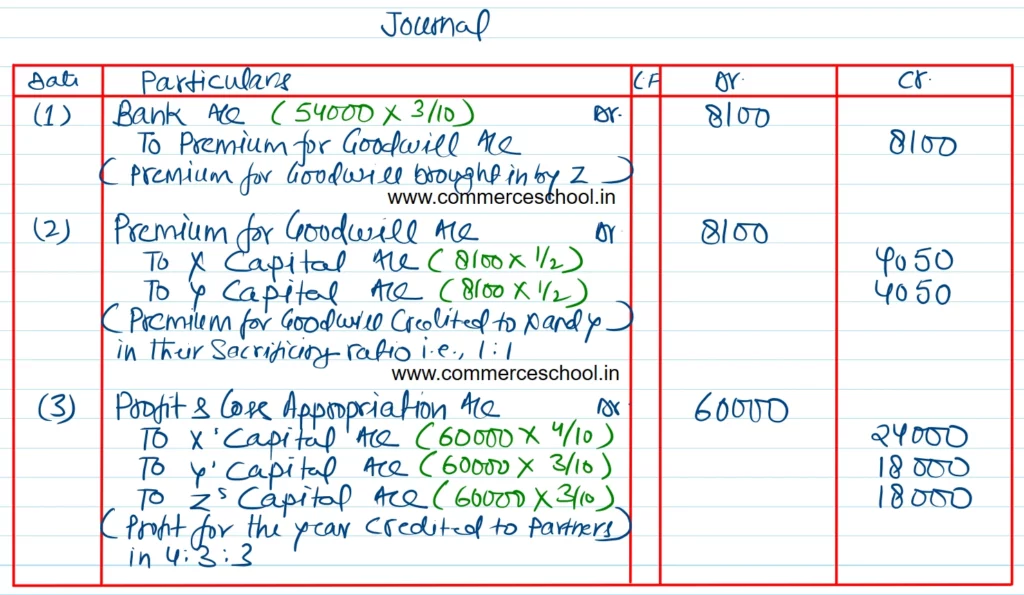 Journal
Date Particulars L.F Dr. Cr.
(1) Bank A/c (54000 × 3/10) Dr. 8100
To Premium for Goodwill A/c 8100
(Premium for Goodwill brought in by Z)
www.commerceschool.in
(2) Premium for Goodwill A/c Dr 8100
To X Capital A/c (8100 × 1/2) 4050
To Y Capital A/c (8100 × 1/2) 4050
(Premium for Goodwill Credited to X and Y)
in their Sacrificing ratio i.e., 1:1
www.commerceschool.in
(3) Profit & Loss Appropriation A/c Dr 60000
To X' Capital A/c (60000 × 4/10) 24000
To Y' Capital A/c (60000 × 3/10) 18000
To Z's Capital A/c (60000 × 3/10) 18000
(Profit for the year credited to Partners)
in 4:3:3